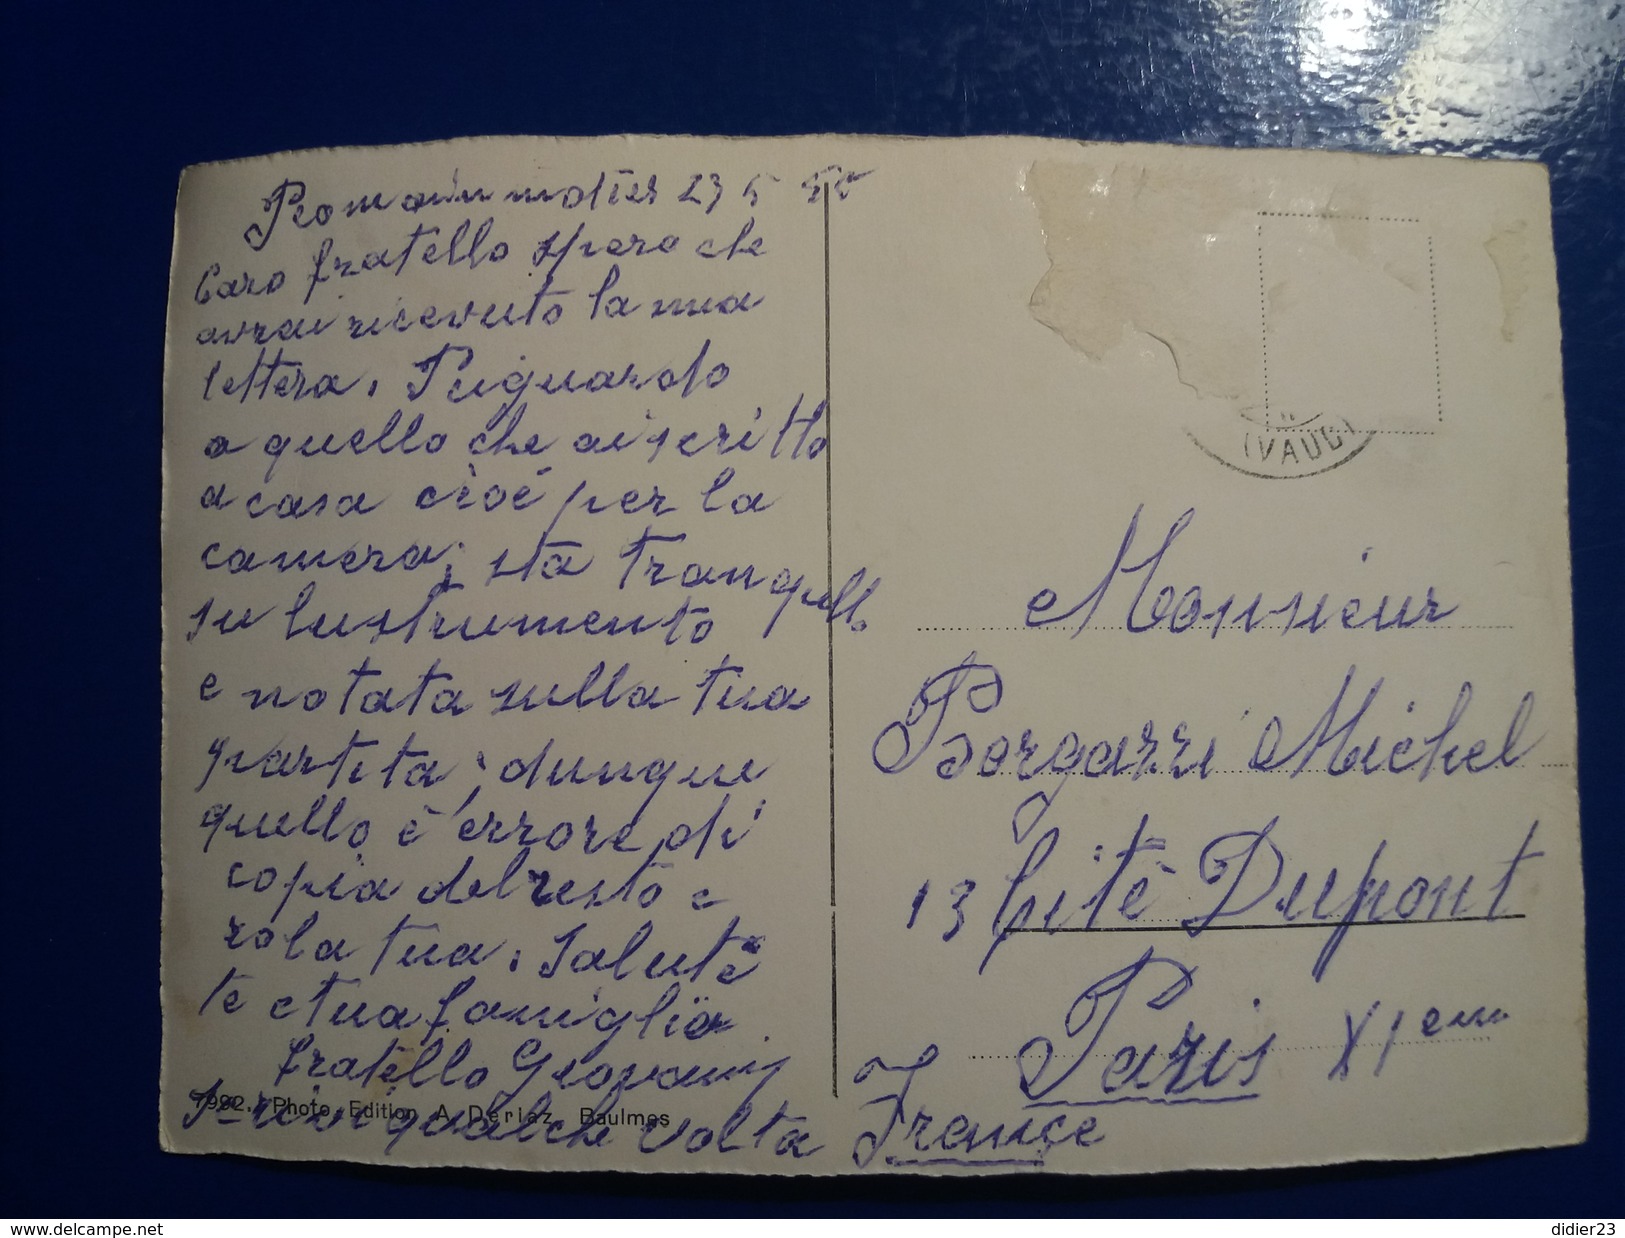 Romainmotier 23 5
Caro fratello spero che
avrai ricevuto la mia
lettera. Riguardo
a quello che ai scritto
a casa cioé per la
camera; sta tranquillo
su lustrumento
e notata sulla tua
partita; dunque
quello é errore di
copia del resto e
rola tua. Saluté
te e tua famiglia
fratello Giovanni
Scrivi qualche volta
7992. Photo Edition A. Deriaz Baulmes
(VAUD)
Monsieur
Borgazzi Michel
13 Cité Dupont
Paris XIem
France
www.delcampe.net
didier23